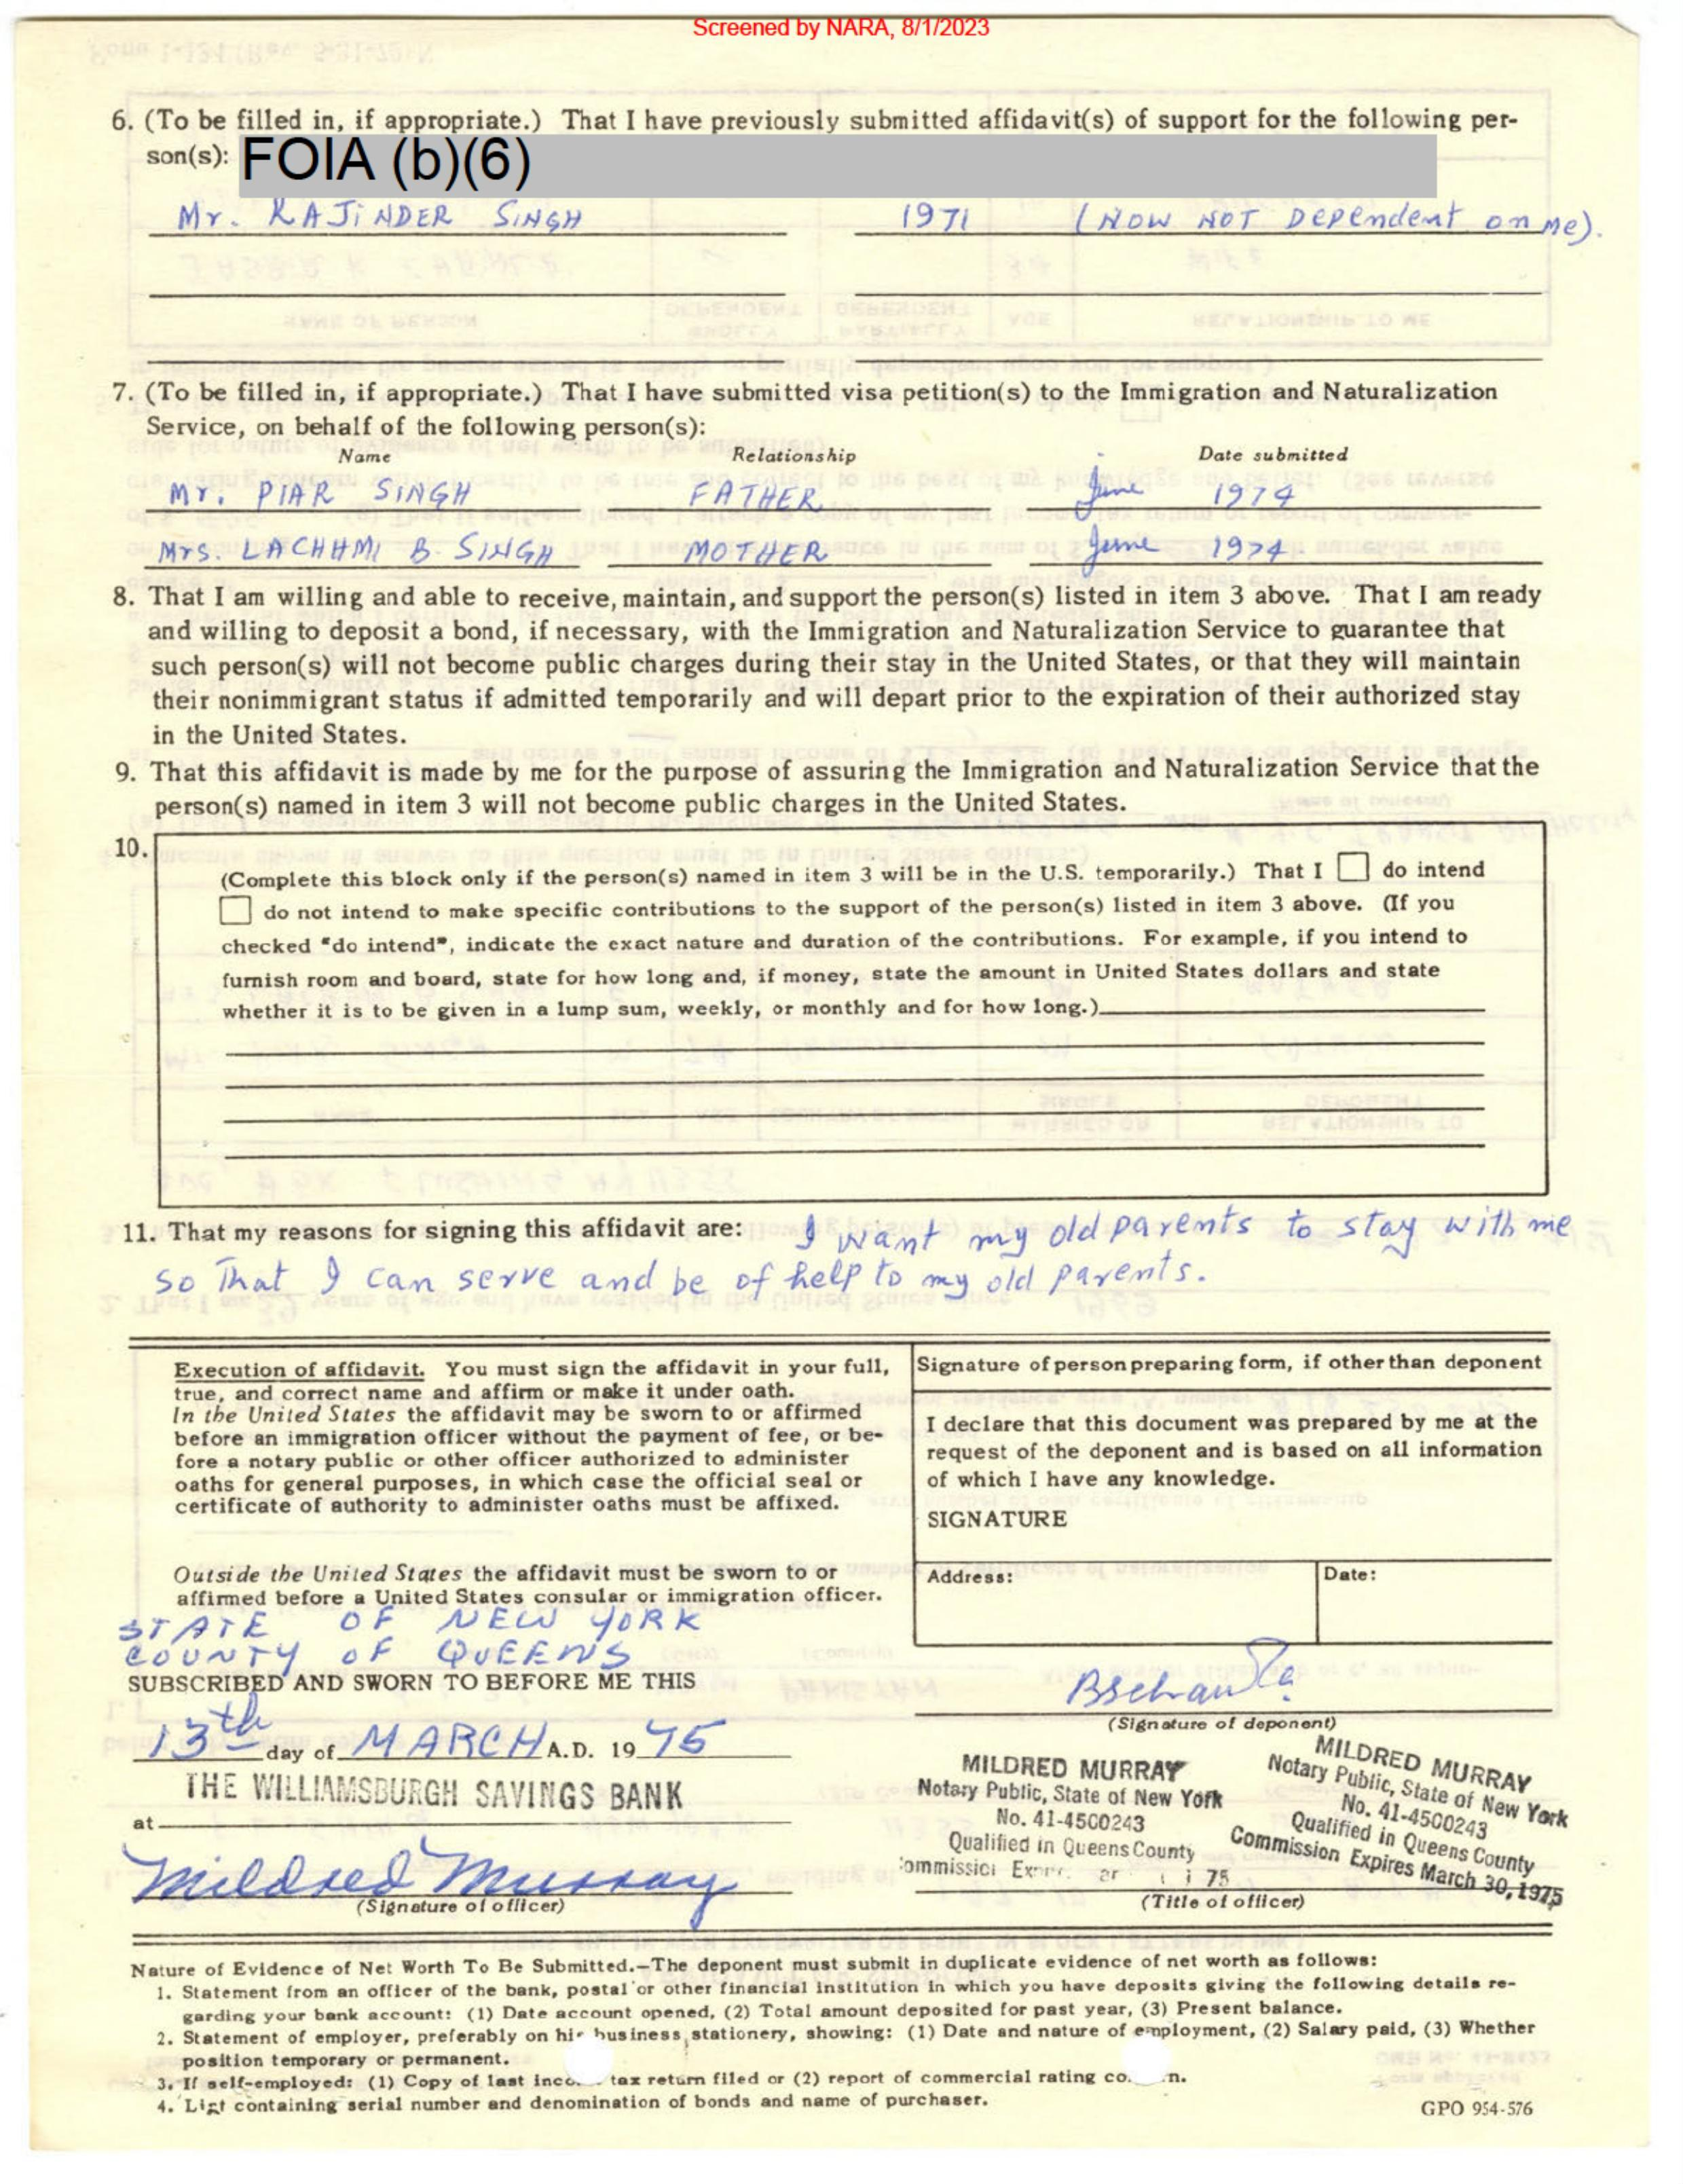 Screened by NARA, 8/1/2023
6. (To be filled in, if appropriate.) That I have previously submitted affidavit(s) of support for the following per-
son(s): FOIA (b)(6)
Mr. RAJINDER SINGH 1971 (NOW NOT Dependent on me).
7. (To be filled in, if appropriate.) That I have submitted visa petition(s) to the Immigration and Naturalization
Service, on behalf of the following person(s):
Name Relationship Date submitted
Mr. PIAR SINGH FATHER June 1974
Mrs. LACHHMI B. SINGH MOTHER June 1974
8. That I am willing and able to receive, maintain, and support the person(s) listed in item 3 above. That I am ready
and willing to deposit a bond, if necessary, with the Immigration and Naturalization Service to guarantee that
such person(s) will not become public charges during their stay in the United States, or that they will maintain
their nonimmigrant status if admitted temporarily and will depart prior to the expiration of their authorized stay
in the United States.
9. That this affidavit is made by me for the purpose of assuring the Immigration and Naturalization Service that the
person(s) named in item 3 will not become public charges in the United States.
10.
(Complete this block only if the person(s) named in item 3 will be in the U.S. temporarily.) That I do intend
do not intend to make specific contributions to the support of the person(s) listed in item 3 above. (If you
checked "do intend", indicate the exact nature and duration of the contributions. For example, if you intend to
furnish room and board, state for how long and, if money, state the amount in United States dollars and state
whether it is to be given in a lump sum, weekly, or monthly and for how long.)
11. That my reasons for signing this affidavit are: I want my old parents to stay with me
so That I can serve and be of help to my old parents.
Execution of affidavit. You must sign the affidavit in your full,
true, and correct name and affirm or make it under oath.
In the United States the affidavit may be sworn to or affirmed
before an immigration officer without the payment of fee, or be-
fore a notary public or other officer authorized to administer
oaths for general purposes, in which case the official seal or
certificate of authority to administer oaths must be affixed.
Outside the United States the affidavit must be sworn to or
affirmed before a United States consular or immigration officer.
Signature of person preparing form, if other than deponent
I declare that this document was prepared by me at the
request of the deponent and is based on all information
of which I have any knowledge.
SIGNATURE
Address: Date:
STATE OF NEW YORK
COUNTY OF QUEENS
SUBSCRIBED AND SWORN TO BEFORE ME THIS
13th day of MARCH A.D. 19 75
(Signature of deponent)
THE WILLIAMSBURGH SAVINGS BANK
at
Mildred Murray
(Signature of officer)
MILDRED MURRAY
Notary Public, State of New York
No. 41-4500243
Qualified in Queens County
75
MILDRED MURRAY
Notary Public, State of New York
No. 41-4500243
Qualified in Queens County
Commission Expires March 30, 1975
(Title of officer)
Nature of Evidence of Net Worth To Be Submitted.—The deponent must submit in duplicate evidence of net worth as follows:
1. Statement from an officer of the bank, postal or other financial institution in which you have deposits giving the following details re-
garding your bank account: (1) Date account opened, (2) Total amount deposited for past year, (3) Present balance.
2. Statement of employer, preferably on his business stationery, showing: (1) Date and nature of employment, (2) Salary paid, (3) Whether
position temporary or permanent.
3. If self-employed: (1) Copy of last tax return filed or (2) report of commercial rating
4. List containing serial number and denomination of bonds and name of purchaser.
GPO 954-576